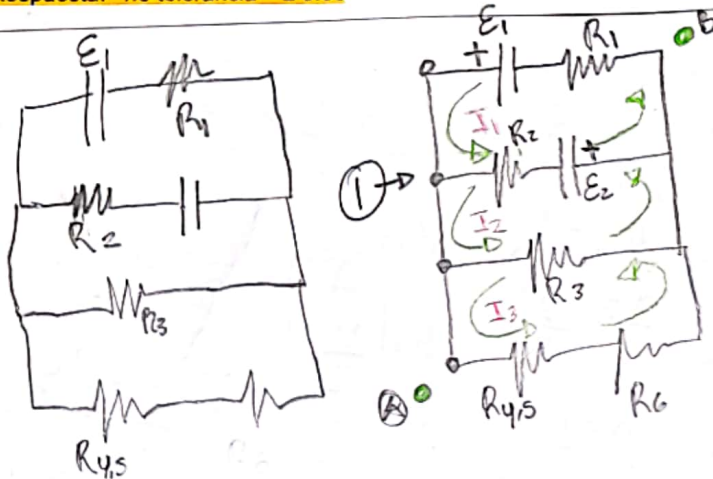 ε1
R1
R2
R3
R4,5
ε1
+
R1
B
I1
R2
+
1
ε2
I2
R3
I3
A
R4,5
R6